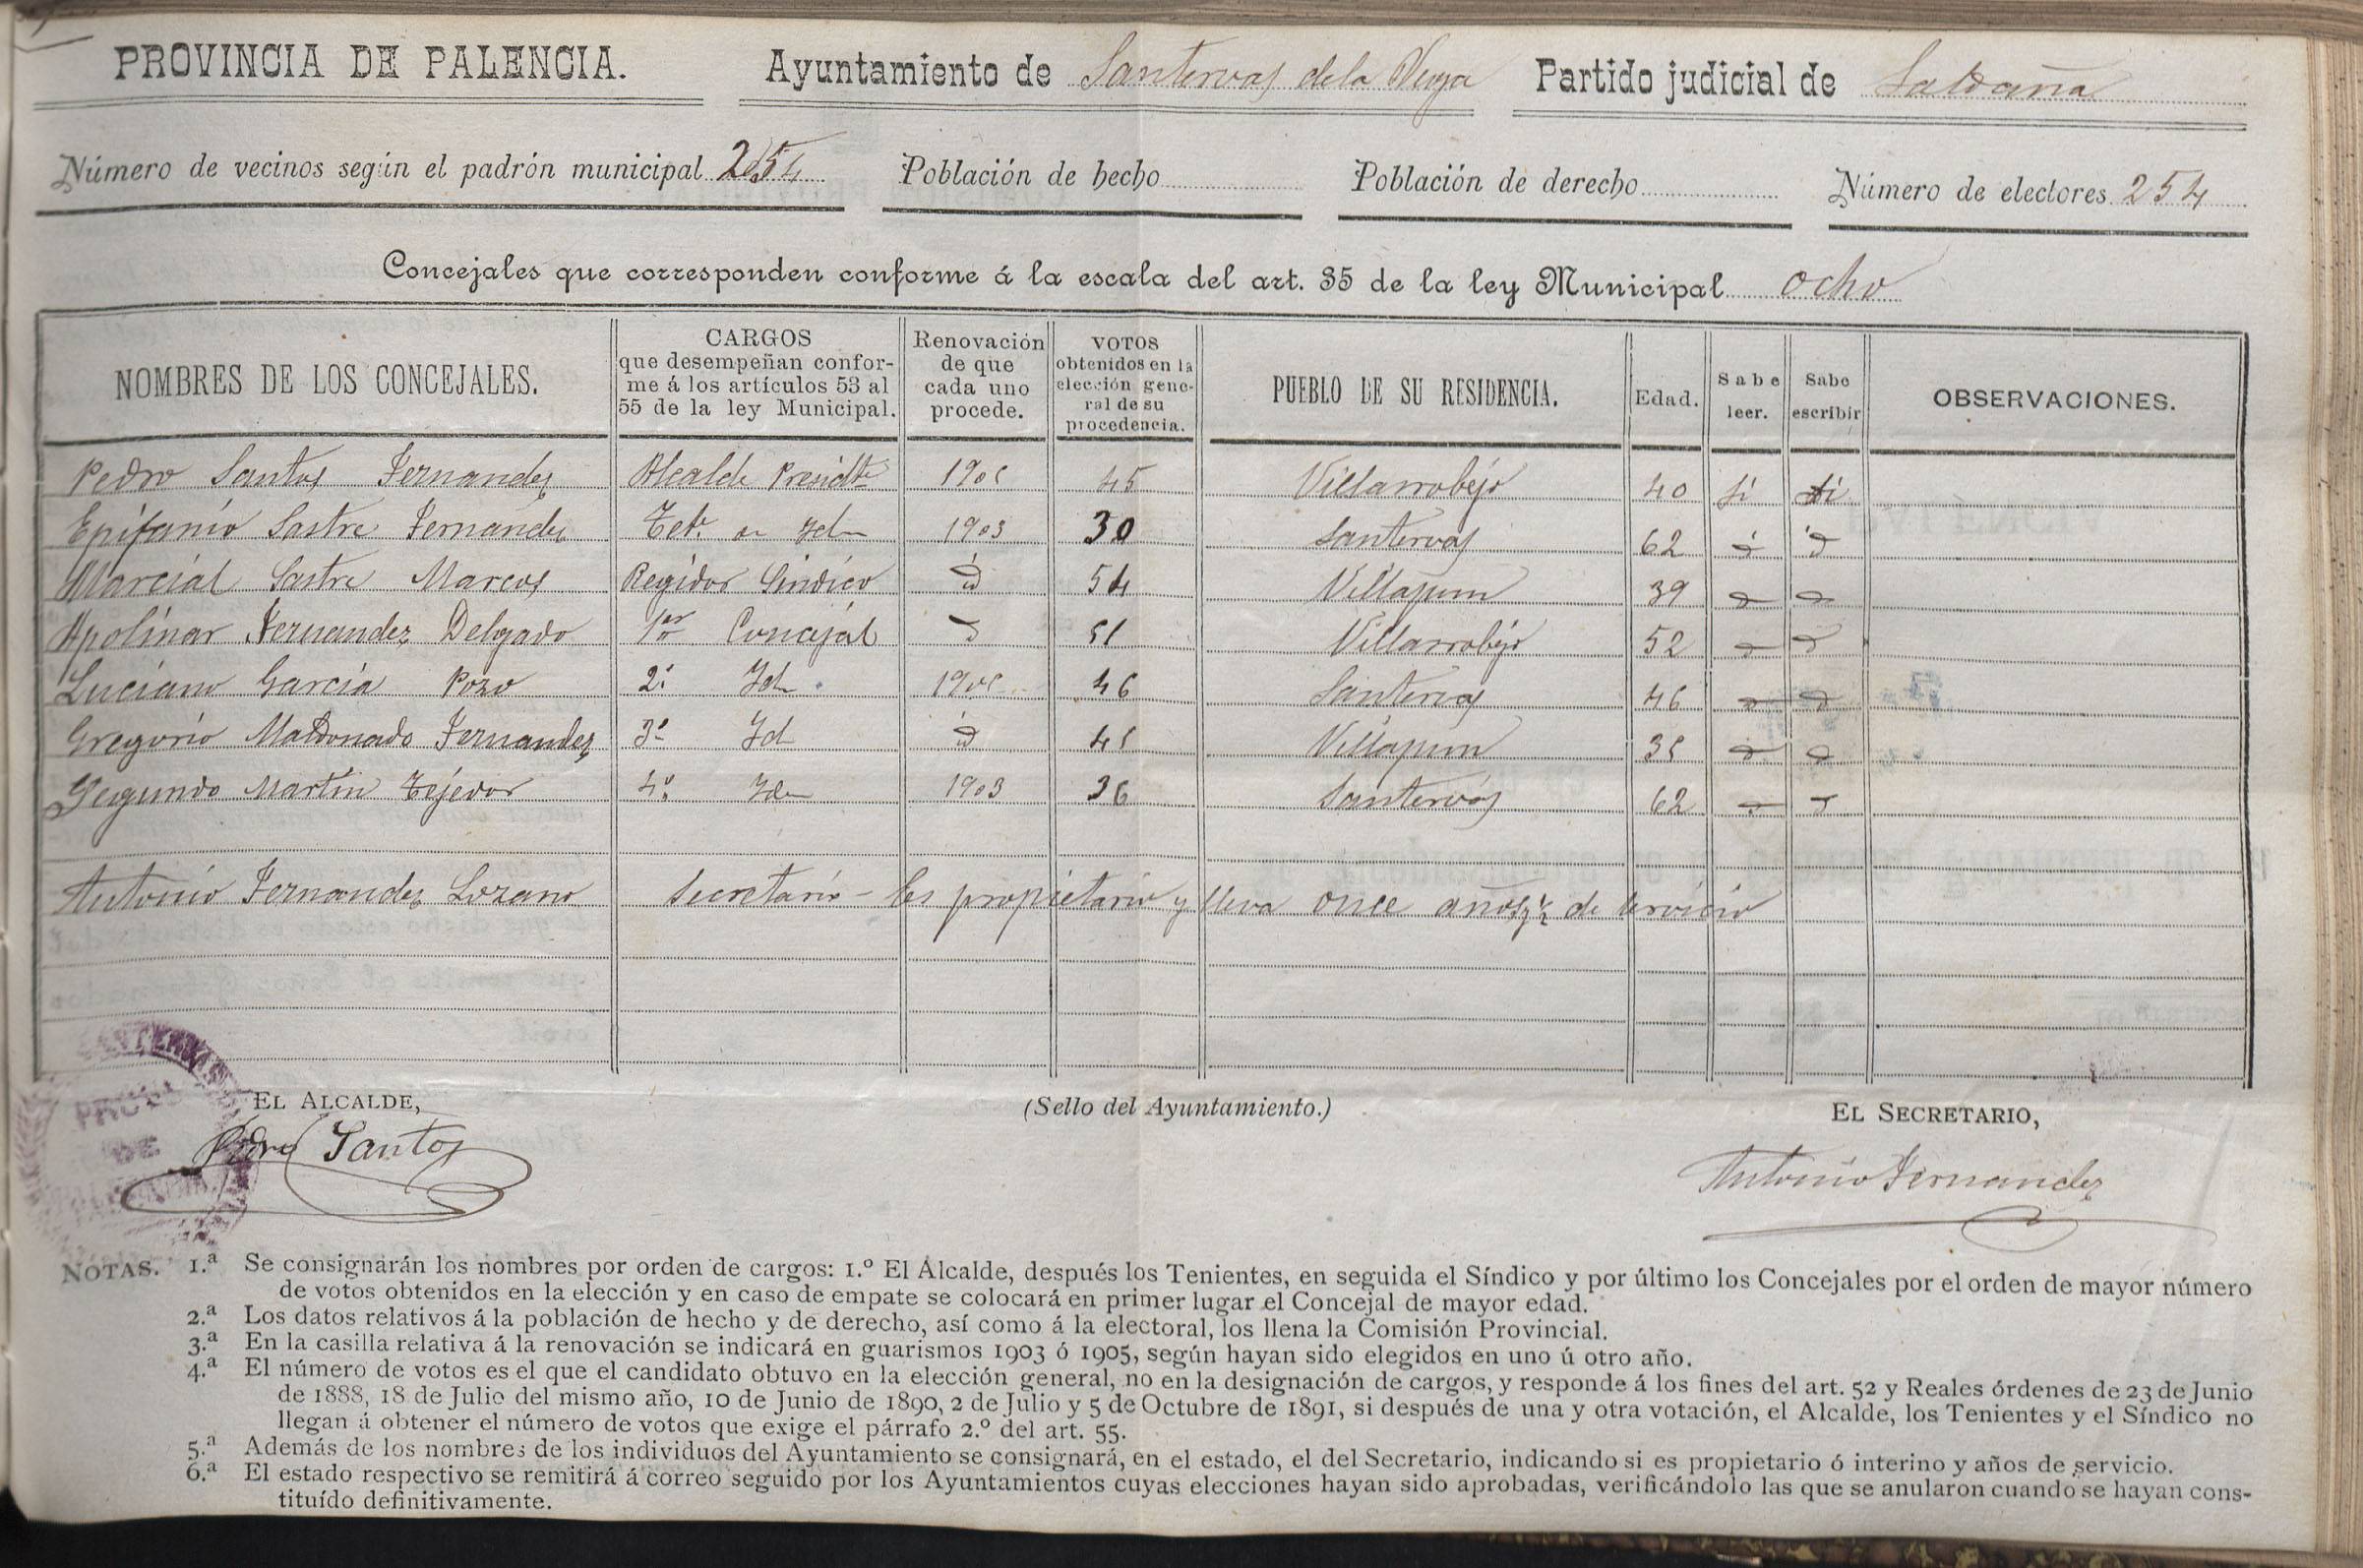 PROVINCIA DE PALENCIA. Ayuntamiento de Santervas de la Vega Partido judicial de Saldaña
Número de vecinos según el padrón municipal 254 Población de hecho Población de derecho Número de electores 254
Concejales que corresponden conforme á la escala del art. 35 de la ley Municipal ocho
NOMBRES DE LOS CONCEJALES. CARGOS que desempeñan confor- me á los artículos 53 al 55 de la ley Municipal. Renovación de que cada uno procede. VOTOS obtenidos en la elección gene- ral de su procedencia. PUEBLO DE SU RESIDENCIA. Edad. Sabe leer. Sabe escribir OBSERVACIONES.
Pedro Santos Fernandez Alcalde Presidte 1905 45 Villarrobejo 40 si si
Epifanio Sastre Fernandez Tete de Idm 1903 30 Santervas 62 id id
Marcial Sastre Marcos Regidor Sindico id 54 Villapun 39 id id
Apolinar Fernandez Delgado 1er Concejal id 51 Villarrobejo 52 id id
Luciano Garcia Pozo 2º Idm 1905 46 Santervas 46 id id
Gregorio Maldonado Fernandez 3º Id id 45 Villapun 35 id id
Segundo Martin Tejedor 4º Idm 1903 36 Santervás 62 id id
Antonio Fernandez Lozano Secretario - Es propietario y lleva once años y ½ de servicio
EL ALCALDE, (Sello del Ayuntamiento.) EL SECRETARIO,
Pedro Santos Antonio Fernandez
SANTERVAS
DE
NOTAS. 1.ª Se consignarán los nombres por orden de cargos: 1.º El Alcalde, después los Tenientes, en seguida el Síndico y por último los Concejales por el orden de mayor número
de votos obtenidos en la elección y en caso de empate se colocará en primer lugar el Concejal de mayor edad.
2.ª Los datos relativos á la población de hecho y de derecho, así como á la electoral, los llena la Comisión Provincial.
3.ª En la casilla relativa á la renovación se indicará en guarismos 1903 ó 1905, según hayan sido elegidos en uno ú otro año.
4.ª El número de votos es el que el candidato obtuvo en la elección general, no en la designación de cargos, y responde á los fines del art. 52 y Reales órdenes de 23 de Junio
de 1888, 18 de Julio del mismo año, 10 de Junio de 1890, 2 de Julio y 5 de Octubre de 1891, si después de una y otra votación, el Alcalde, los Tenientes y el Síndico no
llegan á obtener el número de votos que exige el párrafo 2.º del art. 55.
5.ª Además de los nombres de los individuos del Ayuntamiento se consignará, en el estado, el del Secretario, indicando si es propietario ó interino y años de servicio.
6.ª El estado respectivo se remitirá á correo seguido por los Ayuntamientos cuyas elecciones hayan sido aprobadas, verificándolo las que se anularon cuando se hayan cons-
tituído definitivamente.